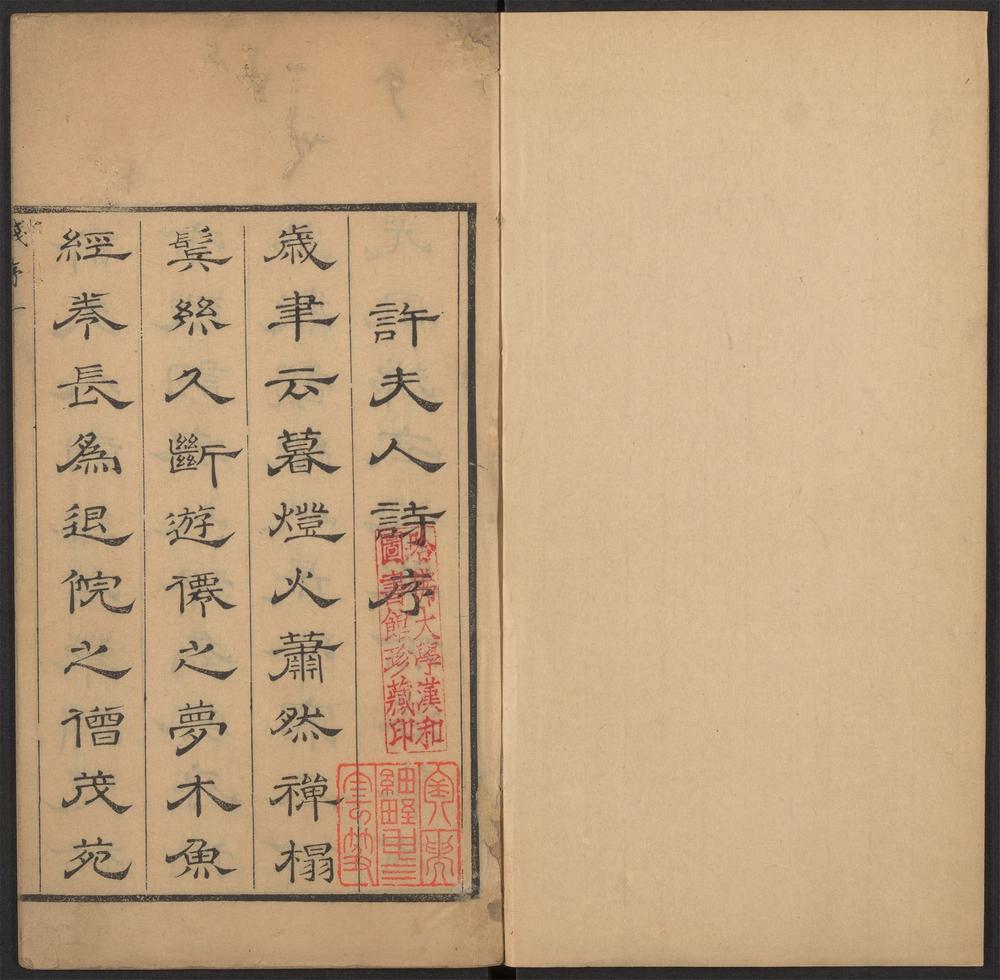 許夫人詩序
歲聿云暮燈火蕭然禪榻
鬂絲久斷遊僊之夢木魚
經卷長爲退院之僧茂苑
哈佛大學漢和
圖書館珍藏印
序一